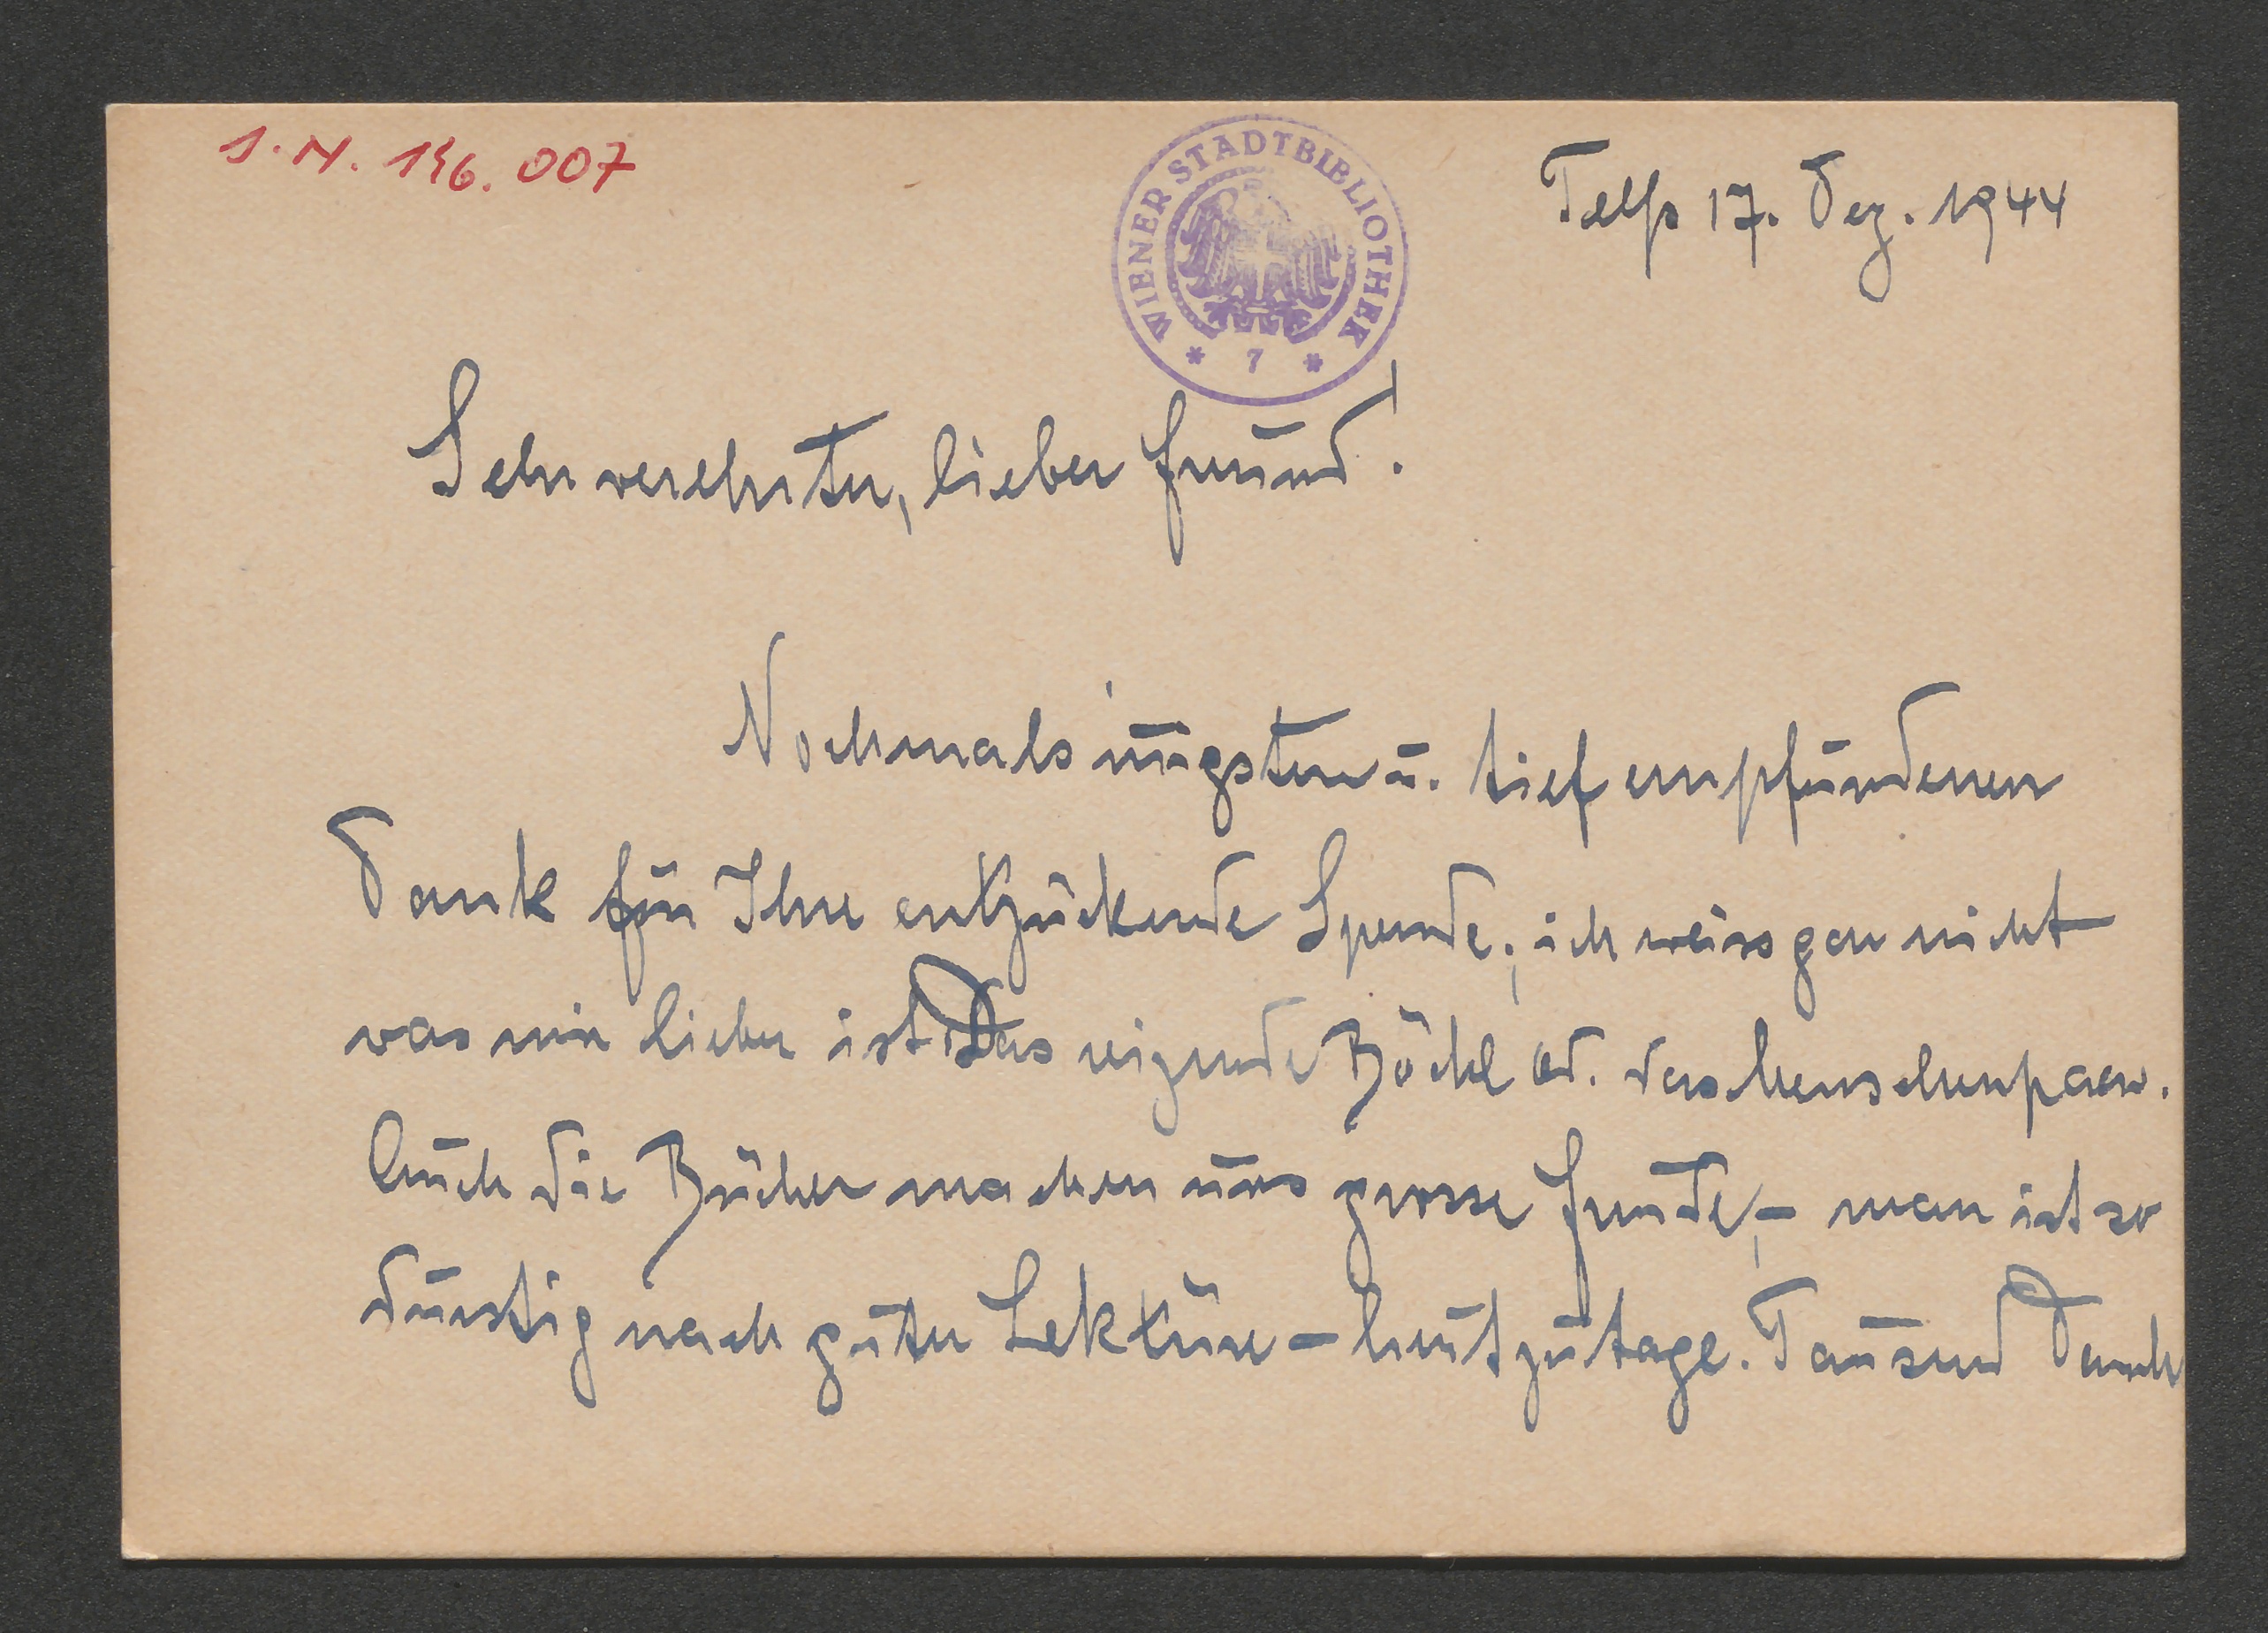 I.N. 196.007
WIENER STADTBIBLIOTHEK
* 7 *
Telfs 17. Dez. 1944
Sehr verehrter, lieber Freund!
Nochmals innigsten u. tief empfundenen
Dank für Ihre entzückende Spende; ich weiss gar nicht
was mir lieber ist Das reizende Böckl od. das Menschenpaar.
Auch die Bücher machen uns grosse Freude, – man ist so
durstig nach guter Lektüre – heutzutage. Tausend Dank